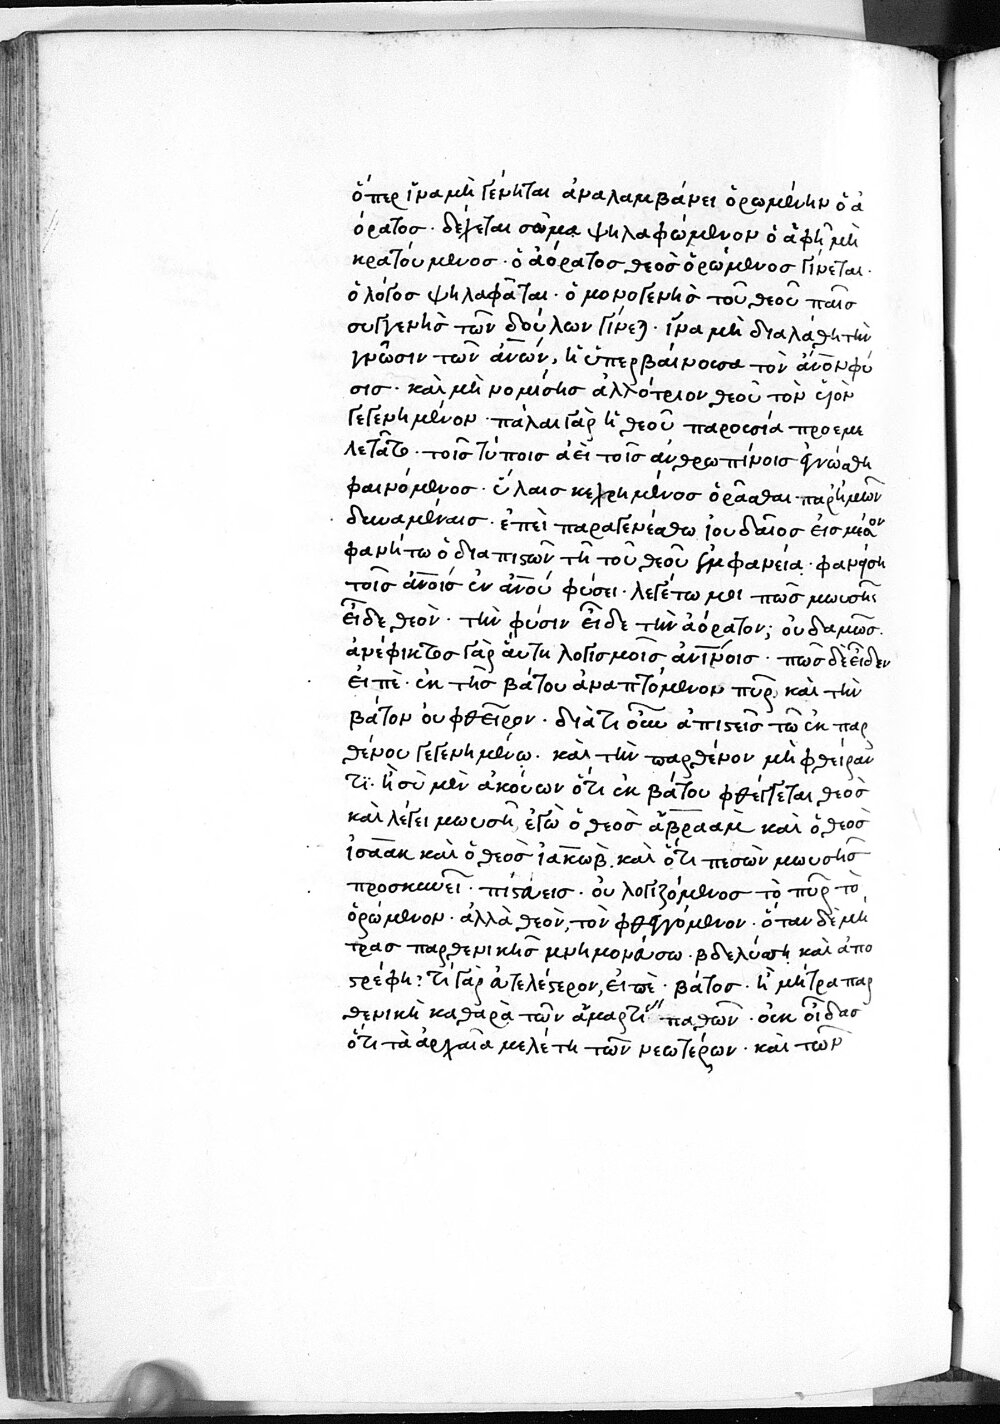 ὅπερ ἵνα μὴ γένηται ἀναλαμβάνει ὁρωμένην ὁ ἀ
όρατος · δέχεται σῶμα ψηλαφώμενον ὁ ἀφῆ μὴ
κρατούμενος · ὁ ἀόρατος θεὸς ὁρώμενος γίνεται ·
ὁ λόγος ψηλαφᾶται · ὁ μονογενὴς τοῦ θεοῦ παῖς
συγγενὴς τῶν δούλων γίνεται · ἵνα μὴ διαλάθη τὴν
γνῶσιν τῶν ἀνων, ἡ ὑπερβαίνουσα τὸν ἀνον φύ
σις · καὶ μὴ νομίσης ἀλλότριον θεοῦ τὸν υἱὸν
γεγενημένον · πάλαι γὰρ ἡ θεοῦ παρουσία προεμε
λετᾶτο · τοῖς τύποις ἀεὶ τοῖς ἀνθρωπίνοις ἐγνώσθη
φαινόμενος · ὕλαις κεχρημένος ὁρᾶσθαι παρ' ἡμῶν
δυναμέναις · ἐπεὶ παραγενέσθω ἰουδαῖος εἰς μέσον
φανήτω ὁ διαπιστῶν τῆ τοῦ θεοῦ ἐμφανεία ·
τοῖς ἀνοις ἐν ἀνου φύσει · λεγέτω μοι πῶς μωυσῆς
εἶδε θεὸν · τὴν φύσιν εἶδε τὴν ἀόρατον; οὐδαμῶς ·
ἀνέφικτος γὰρ αὕτη λογισμοῖς ἀνινοις · πῶς δὲ εἶδεν
εἰπὲ · ἐκ τῆς βάτου ἀναπτόμενον πῦρ καὶ τὴν
βάτον οὐ φθεῖρον · διὰ τί οὖν ἀπιστεῖς τῶ ἐκ παρ
θένου γεγενημένω · καὶ τὴν παρθένον μὴ φθείραν
τι · ἢ σὺ μὲν ἀκούων ὅτι ἐκ βάτου φθέγγεται θεὸς
καὶ λέγει μωυσῆ, ἐγὼ ὁ θεὸς ἀβραὰμ καὶ ὁ θεὸς
ἰσαὰκ καὶ ὁ θεὸς ἰακὼβ. καὶ ὅτι πεσὼν μωυσῆς
προσκυνεῖ · πιστεύεις · οὐ λογιζόμενος τὸ πῦρ τὸ
ὁρώμενον · ἀλλὰ θεὸν, τὸν φθεγγόμενον · ὅταν δὲ μή
τρας παρθενικῆς μνημονεύσω · βδελύσση καὶ ἀπο
στρέφη; τί γὰρ εὐτελέστερον, εἰπὲ · βάτος · ἢ μήτρα παρ
θενικὴ καθαρὰ τῶν ἁμαρτι παθῶν · οὐκ οἶδας
ὅτι τὰ ἀρχαῖα μελέτη τῶν νεωτέρων · καὶ τῶν